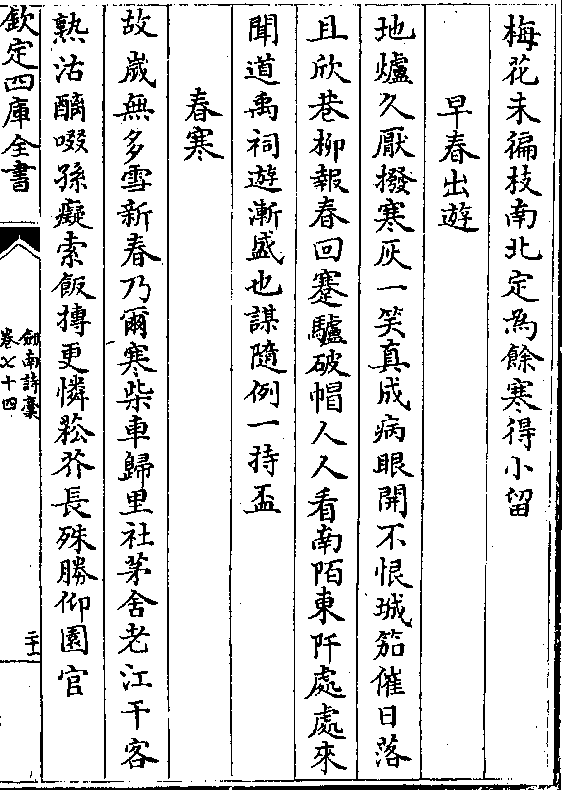 梅花未徧枝南北定為餘寒得小留
早春出遊
地爐久厭撥寒灰一笑真成病眼開不恨城笳催日落
且欣巷柳報春回蹇驢破帽人人看南陌東阡處處來
聞道禹祠遊漸盛也謀隨例一持盃
春寒
故歲無多雪新春乃爾寒柴車歸里社茅舍老江干客
熟沽醨啜孫癡索飯摶更憐菘芥長殊勝仰園官
欽定四庫全書
劍南詩稾
卷七十四
二十